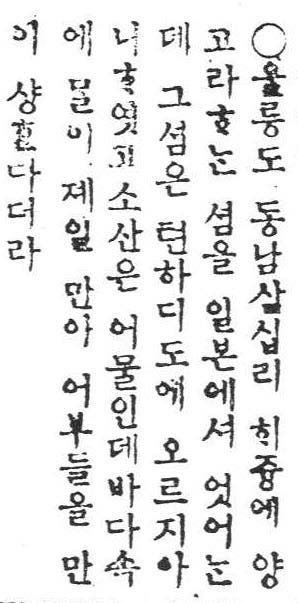 ○울릉도 동남살십리 ᄒᆡ즁에 양
고라ᄒᆞᄂᆞᆫ 셤을 일본에셔 엇어ᄂᆞᆫ
데 그 셤은 텬하디도에 오르지아
니ᄒᆞ엿고 소산은 어물인데 바다속
에 물이 제일 만아 어부들을 만
이 샹ᄒᆞᆫ다더라